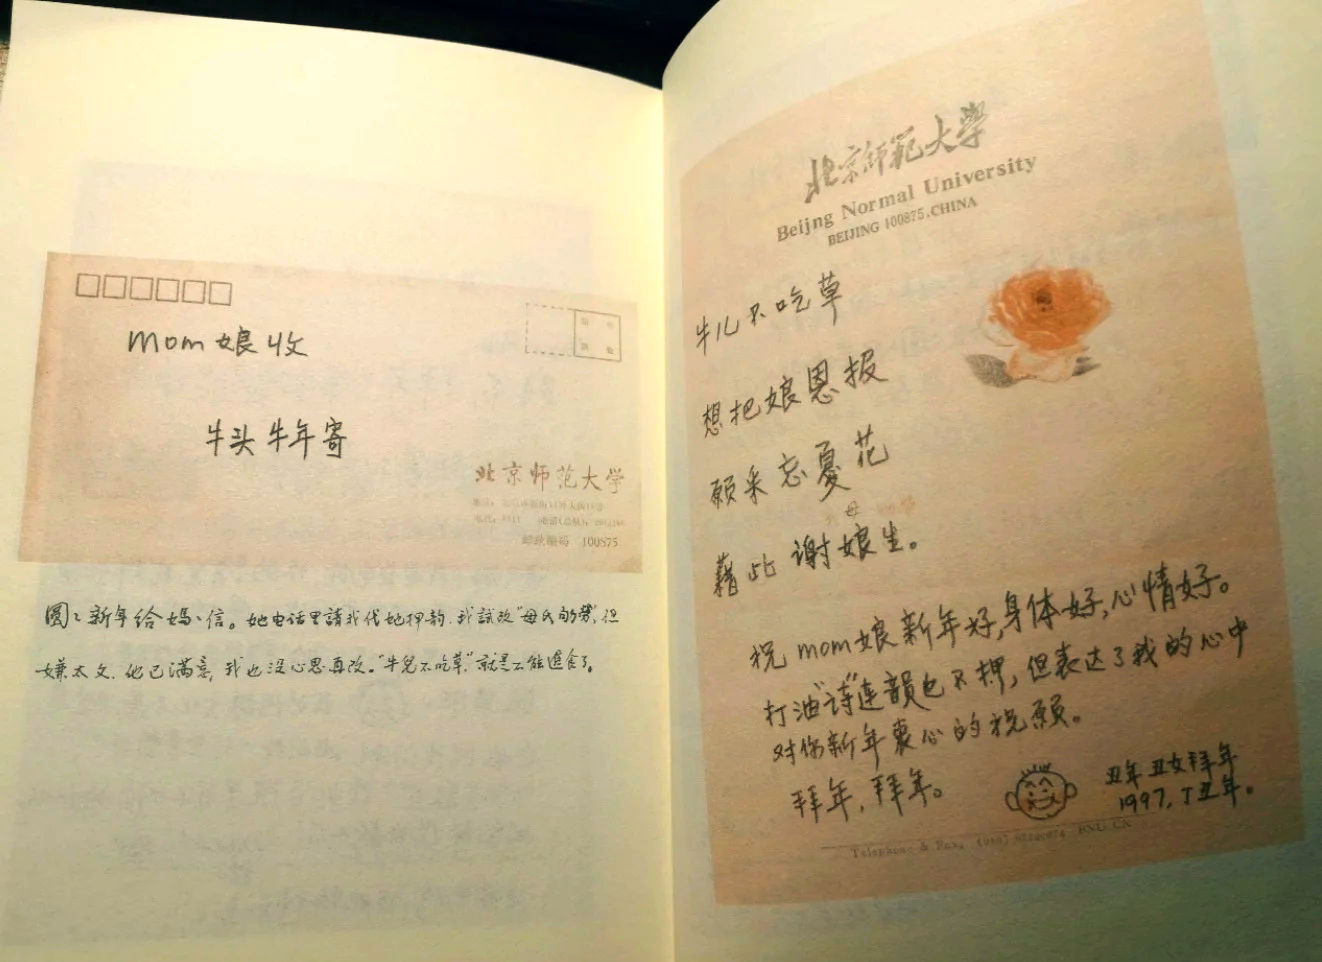 mom娘收
牛头牛年寄
北京师范大学
邮政编码 100875
圆〻新年给媽〻信。她电话里請我代她押韵,我試改"母氏劬劳",但
嫌太文,她已滿意,我也没心思再改。"牛兒不吃草",就是不能進食了。
北京師範大學
Beijng Normal University
BEIJING 100875,CHINA
牛儿不吃草
想把娘恩报
願采忘憂花
藉此谢娘生。
祝mom娘新年好,身体好,心情好。
打油"诗"連韻也不押,但表达了我的心中
对你新年衷心的祝願。
拜年,拜年。
丑年丑女拜年
1997,丁丑年。
Telephone & Fax:
BNU CN